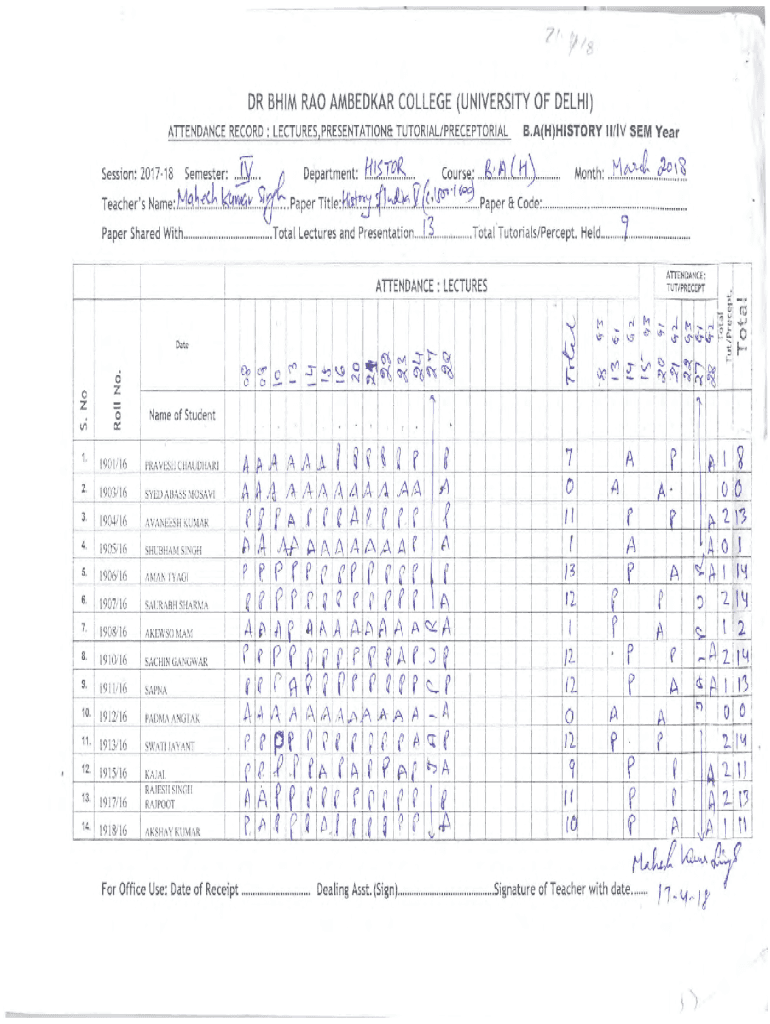 21.4/18
DR BHIM RAO AMBEDKAR COLLEGE (UNIVERSITY OF DELHI)
ATTENDANCE RECORD : LECTURES,PRESENTATION& TUTORIAL/PRECEPTORIAL B.A(H)HISTORY II/IV SEM Year
Session: 2017-18 Semester: IV Department: HISTOR Course: B.A(H) Month: March 2018
Teacher's Name: Mahesh Kumar Singh Paper Title: History of India V Paper & Code:
Paper Shared With Total Lectures and Presentation 13 Total Tutorials/Percept. Held 9
ATTENDANCE : LECTURES ATTENDANCE: TUT/PRECEPT
S. No Roll No. Date 08 09 10 13 14 15 16 20 21 22 23 24 27 28 Total Total Tut/Precept. Total
G3 G1 G2 G3 G1 G2 G3 G1 G2
8 13 14 15 20 21 22 27 28
Name of Student
1. 1901/16 PRAVESH CHAUDHARI A A A A A A P P P P P P P 7 A P A 1 8
2. 1903/16 SYED ABASS MOSAVI A A A A A A A A A A A A A 0 A A 0 0
3. 1904/16 AVANEESH KUMAR P P P A P P P A P P P P P 11 P P A 2 13
4. 1905/16 SHUBHAM SINGH A A A A A A A A A A A P A 1 A A 0 1
5. 1906/16 AMAN TYAGI P P P P P P P P P P P P P 13 P A A 1 14
6. 1907/16 SAURABH SHARMA P P P P P P P P P P P P A 12 P P 2 14
7. 1908/16 AKEWSO MAM A A A P A A A A A A A A A 1 P A 1 2
8. 1910/16 SACHIN GANGWAR P P P P P P P P P P A P P 12 P P A 2 14
9. 1911/16 SAPNA P P P A P P P P P P P P P 12 P A A 1 13
10. 1912/16 PADMA ANGTAK A A A A A A A A A A A A A 0 A A 0 0
11. 1913/16 SWATI JAYANT P P P P P P P P P P P A P 12 P P 2 14
12. 1915/16 KAJAL P P P P A P A P P A P A 9 P P A 2 11
13. 1917/16 RAJESH SINGH RAJPOOT A A P P P P P P P P P P P 11 P P A 2 13
14. 1918/16 AKSHAY KUMAR P A P P P A P P P P P P A 10 P A A 1 11
Mahesh Kumar Singh
For Office Use: Date of Receipt Dealing Asst.(Sign) Signature of Teacher with date 17-4-18